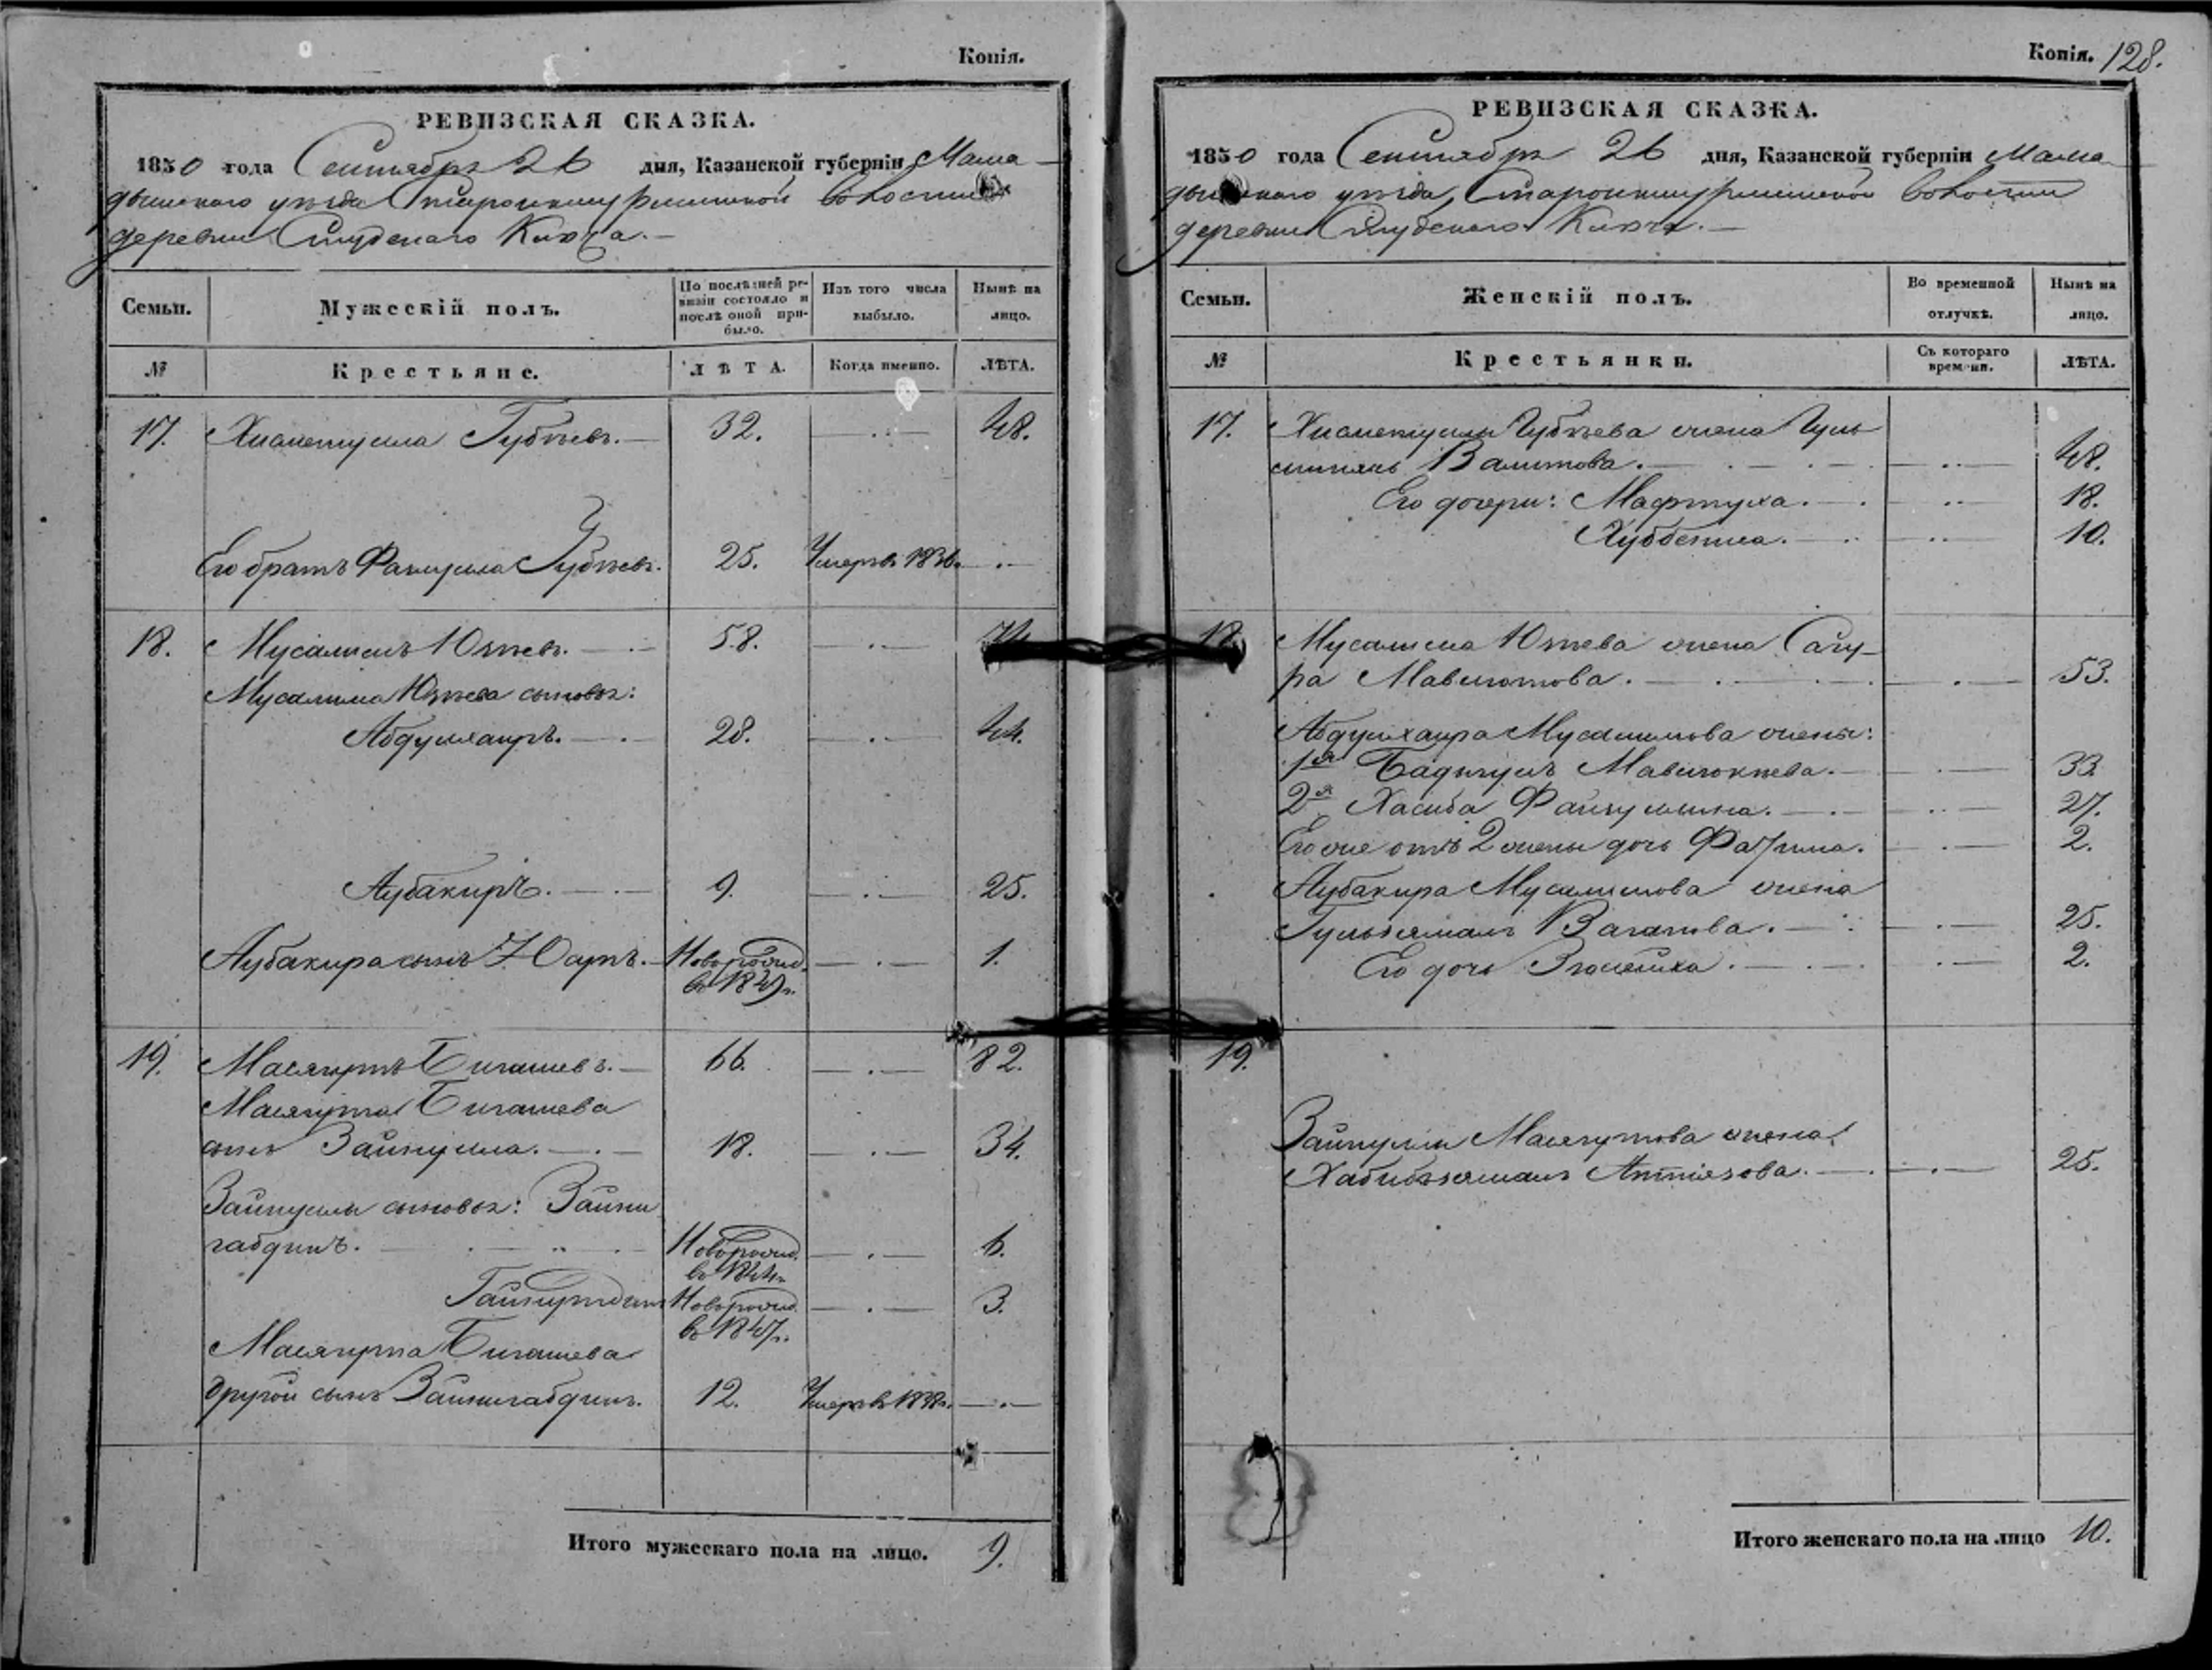 Копія.
РЕВИЗСКАЯ СКАЗКА.
1850 года Сентября 26 дня, Казанской губерніи Мама-
дышскаго уѣзда волости
деревни Студенаго Ключа.—
Семьи.
Мужескій полъ.
По послѣдней ре-
визіи состояло и
послѣ оной при-
было.
Изъ того числа
выбыло.
Нынѣ на
лицо.
№
Крестьяне.
ЛѢТА.
Когда именно.
ЛѢТА.
17. Губѣевъ.— 32. 48.
Его братъ Губѣевъ. 25. Умеръ въ 1836.
18. Мусалимъ Юзѣевъ. 58. 74.
Мусалима Юзѣева сыновья:
Абдулхаиръ. 28. 44.
Аубакиръ. 9. 25.
Аубакира сынъ Новорожд. 1.
въ 1849 г.
19. Масягутъ Бигашевъ.— 66. 82.
Масягута Бигашева
сынъ Зайнулла. 18. 34.
Зайнуллы сыновья: Зайни
габдинъ. Новорожд. 6.
въ 1844 г.
Новорожд. 3.
въ 1847 г.
Масягута Бигашева
другой сынъ Зайнигабдинъ. 12. Умеръ въ 1838 г.
Итого мужескаго пола на лицо. 9.
Копія. 128.
РЕВИЗСКАЯ СКАЗКА.
1850 года Сентября 26 дня, Казанской губерніи Мама-
дышскаго уѣзда волости
деревни Студенаго Ключа.—
Семьи.
Женскій полъ.
Во временной
отлучкѣ.
Нынѣ на
лицо.
№
Крестьянки.
Съ котораго
времени.
ЛѢТА.
17. Губѣева жена Гуль
Валитова. 48.
Его дочери: Мафтуха. 18.
Хуббениса. 10.
18. Мусалима Юзѣева жена Сагу-
ра Мавлютова. 53.
Абдулхаира Мусалимова жены:
1я Бадыгулъ 33
2я Хасиба Файзуллина. 27.
Его же отъ 2 жены дочь Фатима. 2.
Аубакира Мусалимова жена
Гульжамалъ Вагапова. 25.
Его дочь 2.
19.
Зайнуллы Масягутова жена
Хабибзямалъ 25.
Итого женскаго пола на лицо 10.